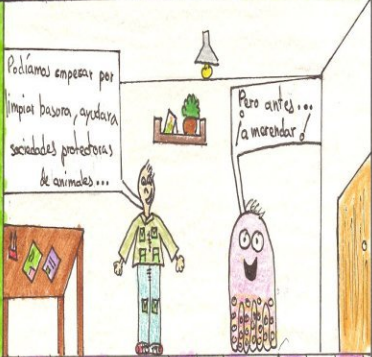 Podíamos empezar por
limpiar basura, ayudar a
sociedades protectoras
de animales...
Pero antes...
¡a merendar!